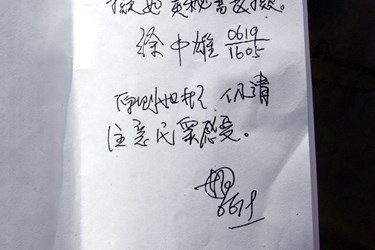 擬如黃秘書長擬。
徐中雄 0619 1605
原則如拟，仍請
注意民眾感受。
0619